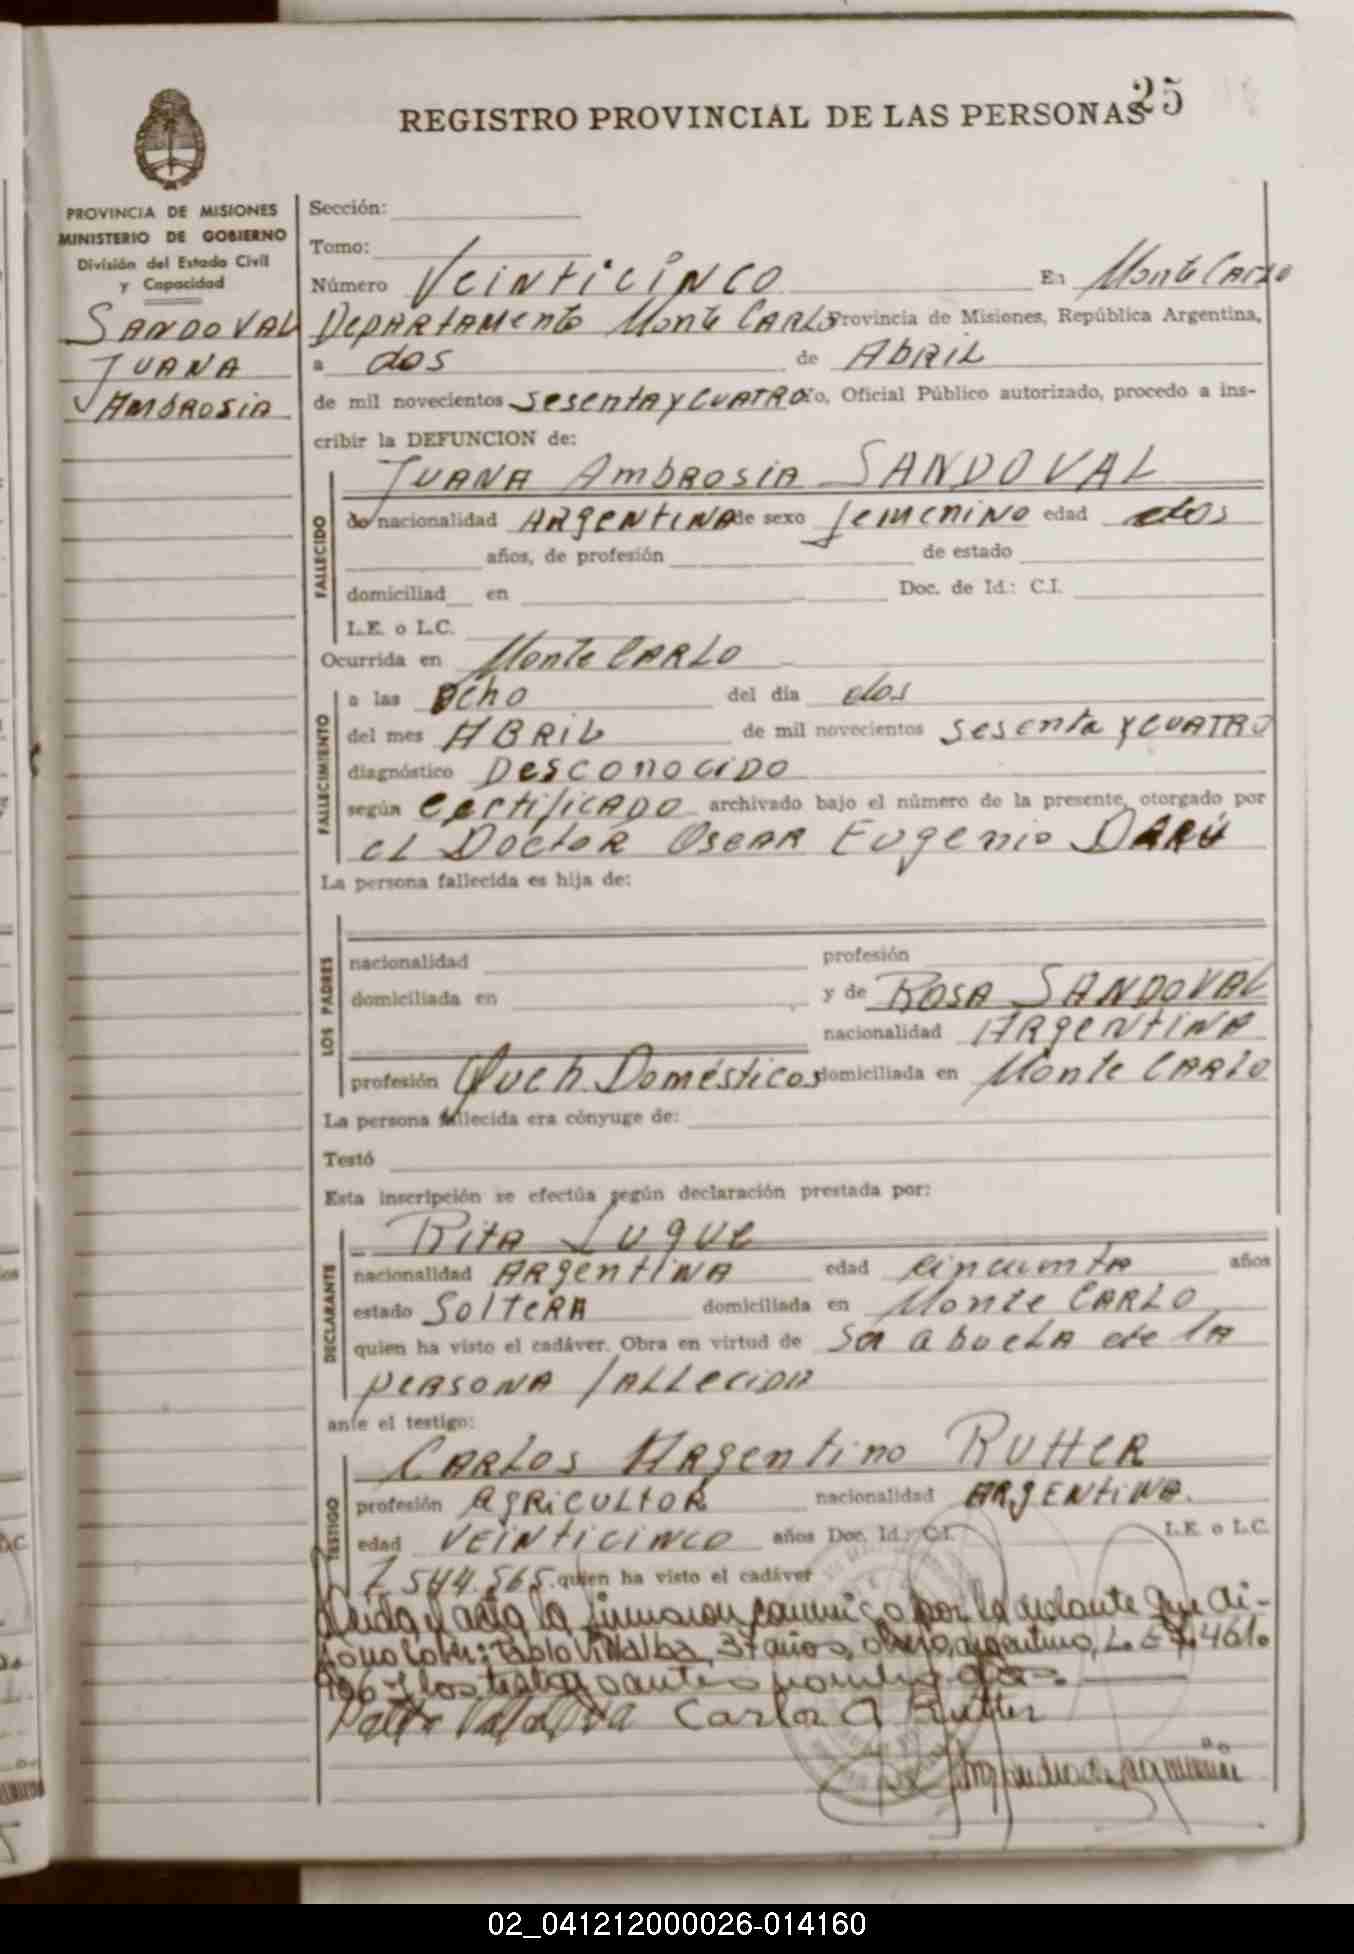 25
REGISTRO PROVINCIAL DE LAS PERSONAS
PROVINCIA DE MISIONES
MINISTERIO DE GOBIERNO
División del Estado Civil
y Capacidad
SANDOVAL
JUANA
AMBROSIA
Sección:
Tomo:
Número VEINTICINCO En Monte Carlo
Departamento Monte Carlo Provincia de Misiones, República Argentina,
a dos de ABRIL
de mil novecientos sesenta y cuatro Yo, Oficial Público autorizado, procedo a ins-
cribir la DEFUNCION de:
JUANA Ambrosia SANDOVAL
FALLECIDO
de nacionalidad ARgentina de sexo femenino edad dos
años, de profesión de estado
domiciliad en Doc. de Id.: C.I.
L.E. o L.C.
Ocurrida en Monte Carlo
FALLECIMIENTO
a las ocho del día dos
del mes ABRIL de mil novecientos sesenta y cuatro
diagnóstico Desconocido
según Certificado archivado bajo el número de la presente, otorgado por
el Doctor Oscar Eugenio Darú
La persona fallecida es hija de:
LOS PADRES
nacionalidad profesión
domiciliada en y de Rosa SANDOVAL
nacionalidad ARgentina
profesión Queh. Domésticos domiciliada en Monte Carlo
La persona fallecida era cónyuge de:
Testó
Esta inscripción se efectúa según declaración prestada por:
Rita Luque
DECLARANTE
nacionalidad ARgentina edad cincuenta años
estado Soltera domiciliada en Monte Carlo
quien ha visto el cadáver. Obra en virtud de ser abuela de la
persona fallecida
ante el testigo:
Carlos Argentino Rutter
TESTIGO
profesión Agricultor nacionalidad ARgentina.
edad veinticinco años Doc. Id.: C.I. L.E. o L.C.
7.544.565. quien ha visto el cadáver
Leida el acta la conmigo por la declarante que di-
Pablo Villalba, 37 años, obrero, argentino, L.E 7.461.
906 y los testigos antes
Carlos A Rutter
02_041212000026-014160